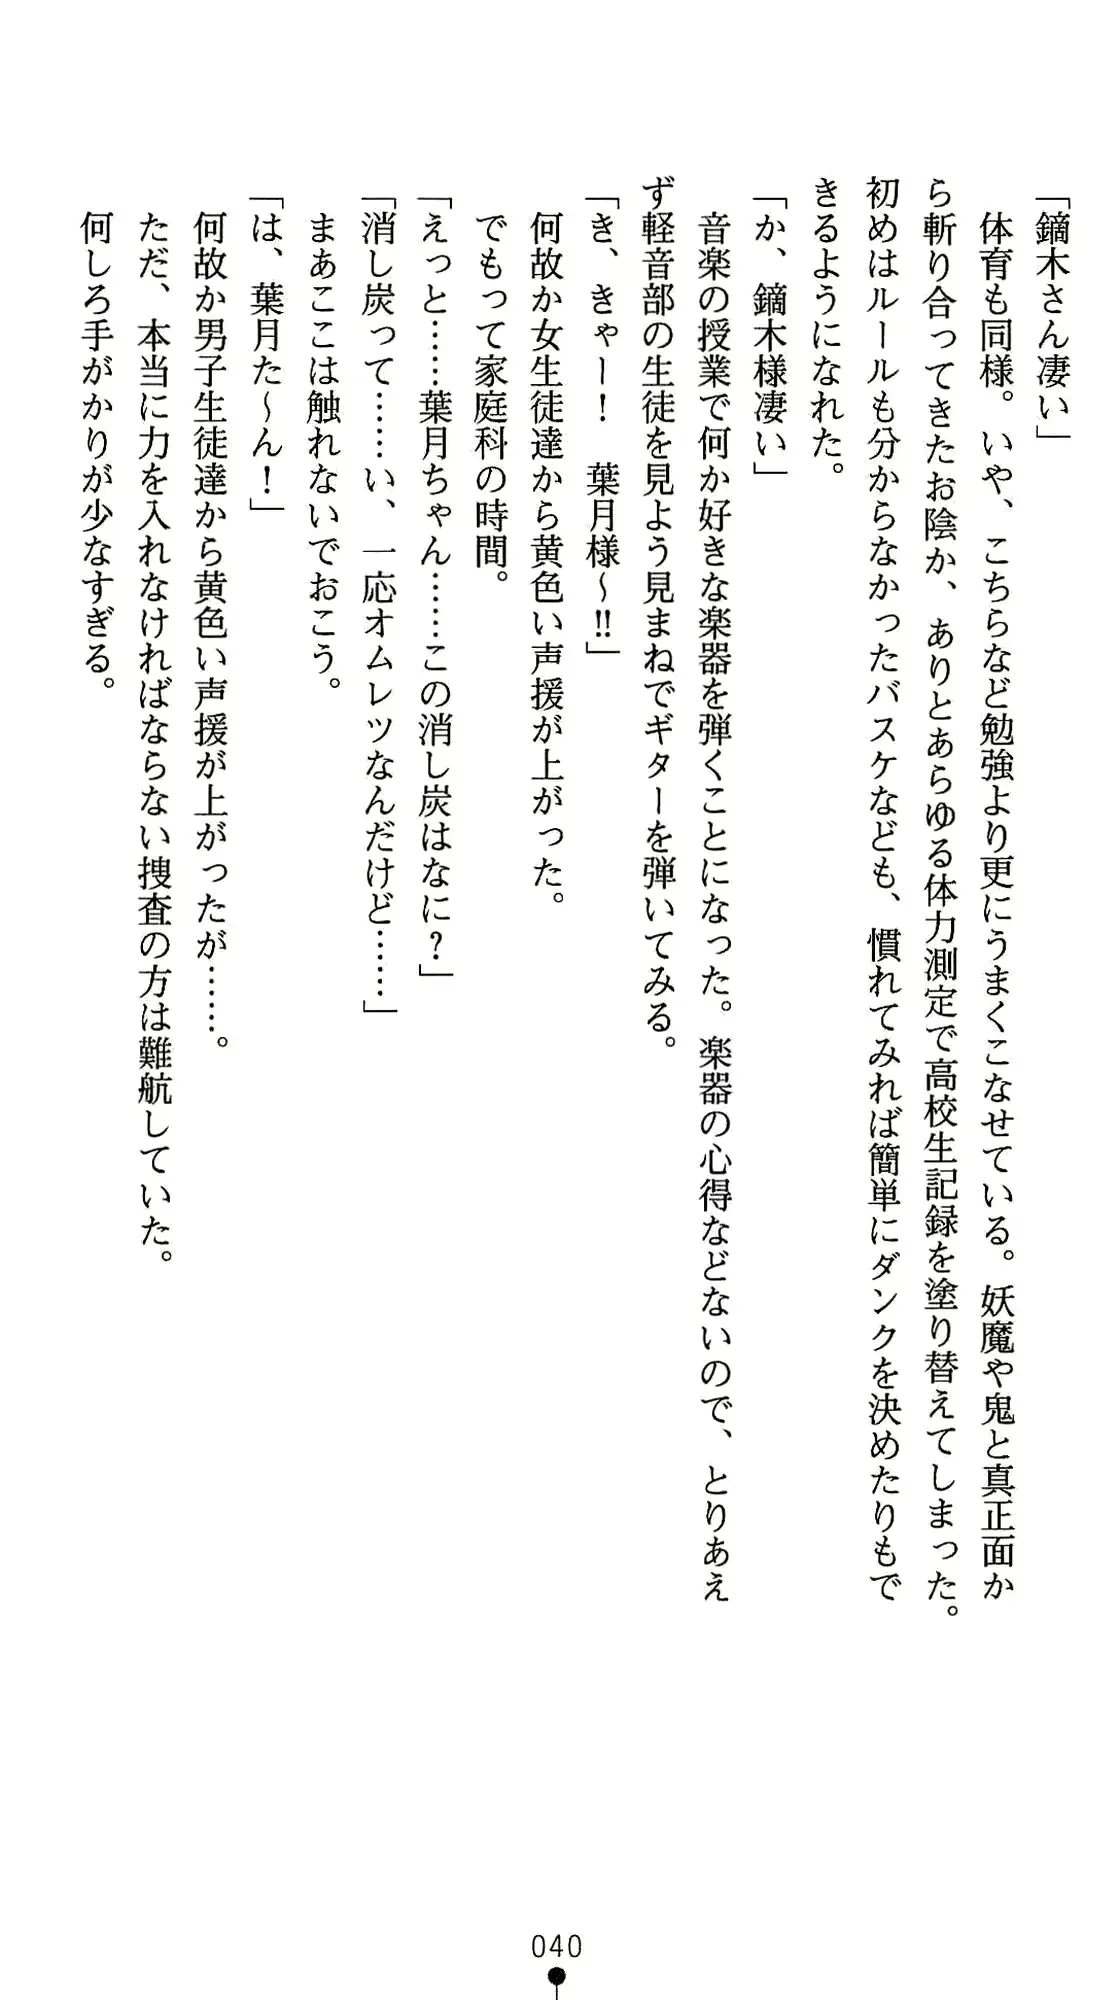 「鏑木さん凄い」
体育も同様。いや、こちらなど勉強より更にうまくこなせている。妖魔や鬼と真正面か
ら斬り合ってきたお陰か、ありとあらゆる体力測定で高校生記録を塗り替えてしまった。
初めはルールも分からなかったバスケなども、慣れてみれば簡単にダンクを決めたりもで
きるようになれた。
「か、鏑木様凄い」
音楽の授業で何か好きな楽器を弾くことになった。楽器の心得などないので、とりあえ
ず軽音部の生徒を見よう見まねでギターを弾いてみる。
「き、きゃー！　葉月様～‼」
何故か女生徒達から黄色い声援が上がった。
でもって家庭科の時間。
「えっと……葉月ちゃん……この消し炭はなに？」
「消し炭って……い、一応オムレツなんだけど……」
まあここは触れないでおこう。
「は、葉月た～ん！」
何故か男子生徒達から黄色い声援が上がったが……。
ただ、本当に力を入れなければならない捜査の方は難航していた。
何しろ手がかりが少なすぎる。
040